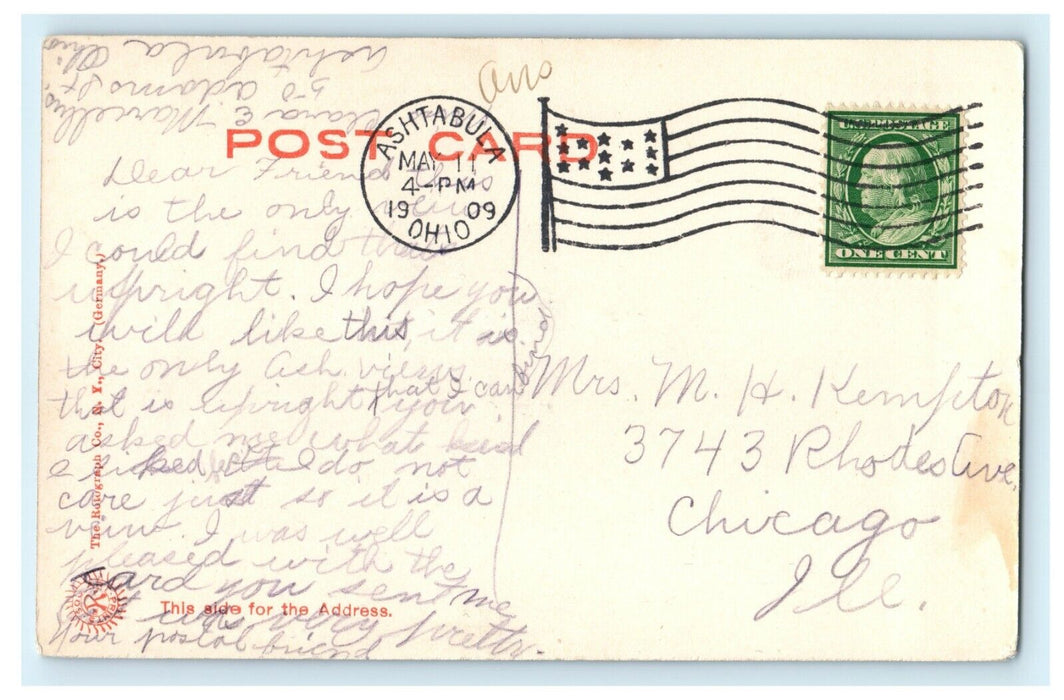 Ans
POST CARD
ASHTABULA
MAY 11
4-PM
1909
OHIO
UNITED STATES POSTAGE
ONE CENT
Dear Friend this
is the only view
I could find that
upright. I hope you
will like this, it is
the only Ash. views
that I can find
that is upright, you
asked me what kind
I liked best I do not
care just so it is a
view. I was well
pleased with the
card you sent me
it was very pretty.
Your postal friend
Clara E. Marcellus
50 Adams St
Ashtabula Ohio
Mrs. M. H. Kempton
3743 Rhodes Ave.
Chicago
Ill.
The Rotograph Co., N. Y., City. (Germany.)
This side for the Address.